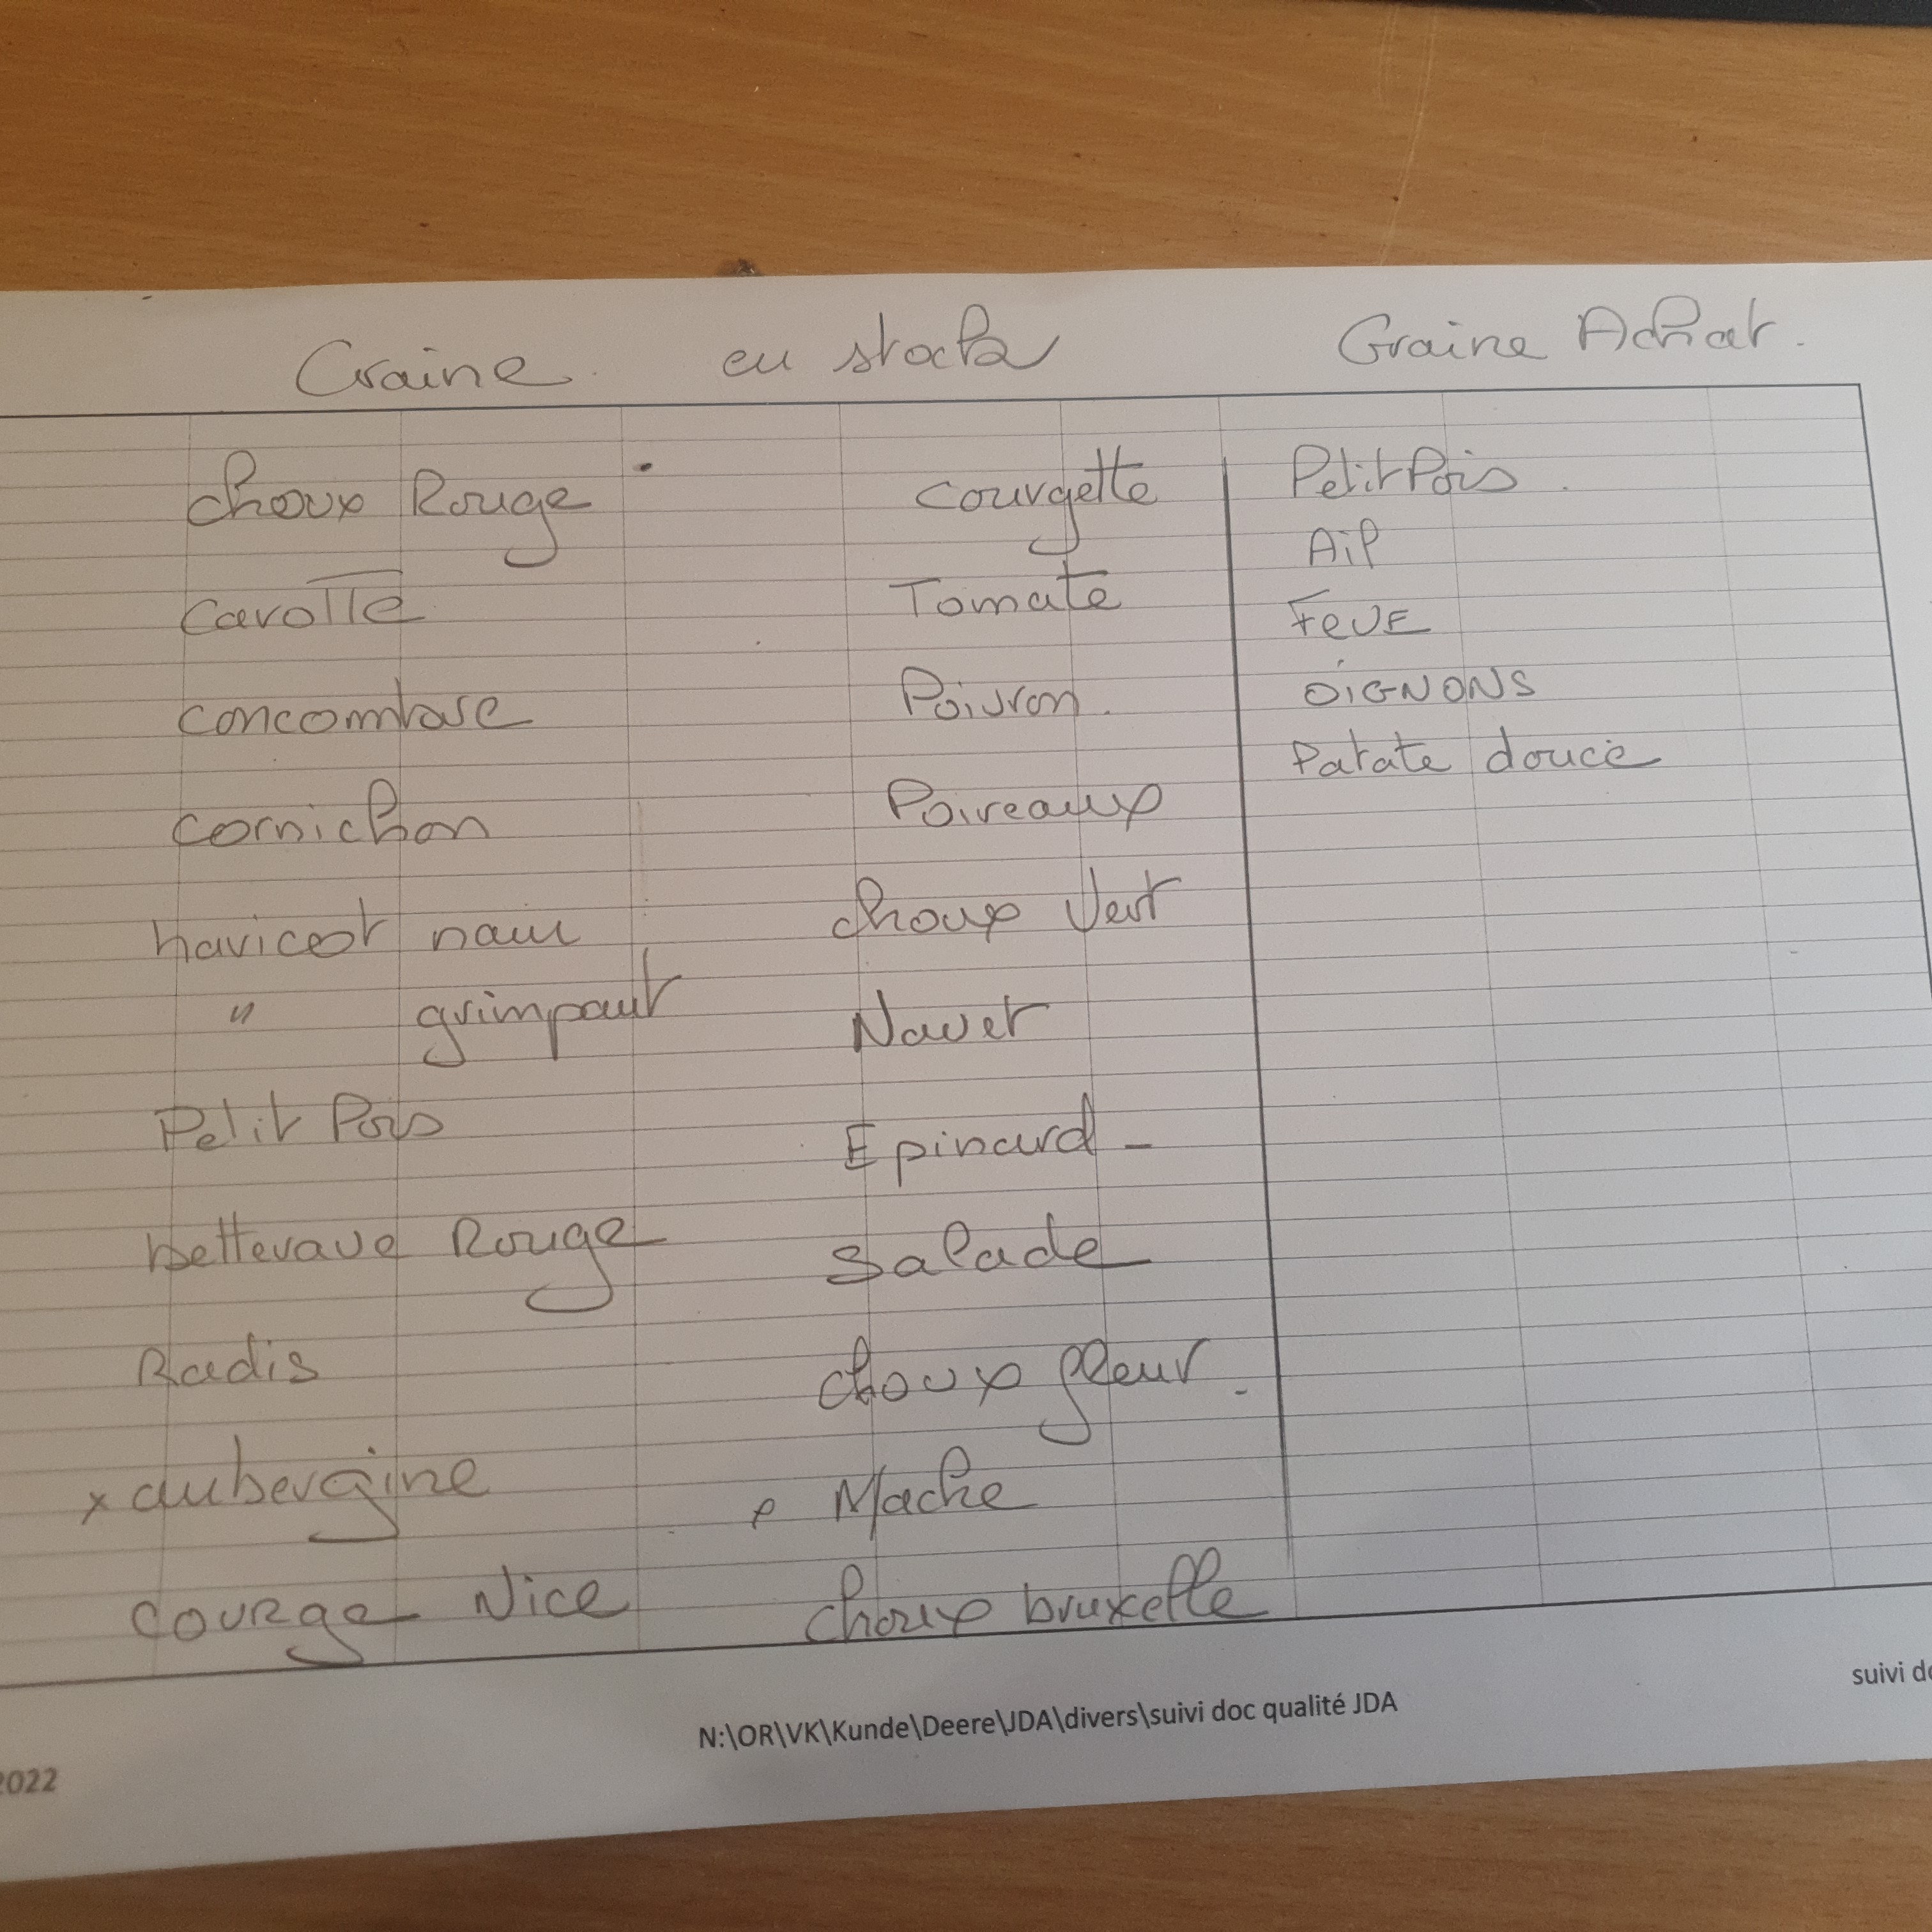 Graine en stock
Graine Achat.
choux Rouge
carotte
concombre
cornichon
haricot nain
" grimpant
Petit Pois
betterave Rouge
Radis
x aubergine
courge Nice
courgette
Tomate
Poivron.
Poireaux
choux Vert
Navet
Epinard -
Salade
choux fleur.
Mache
choux bruxelle
Petit Pois.
Ail
FeVE
OIGNONS
Patate douce
N:\OR\VK\Kunde\Deere\JDA\divers\suivi doc qualité JDA
suivi do
2022